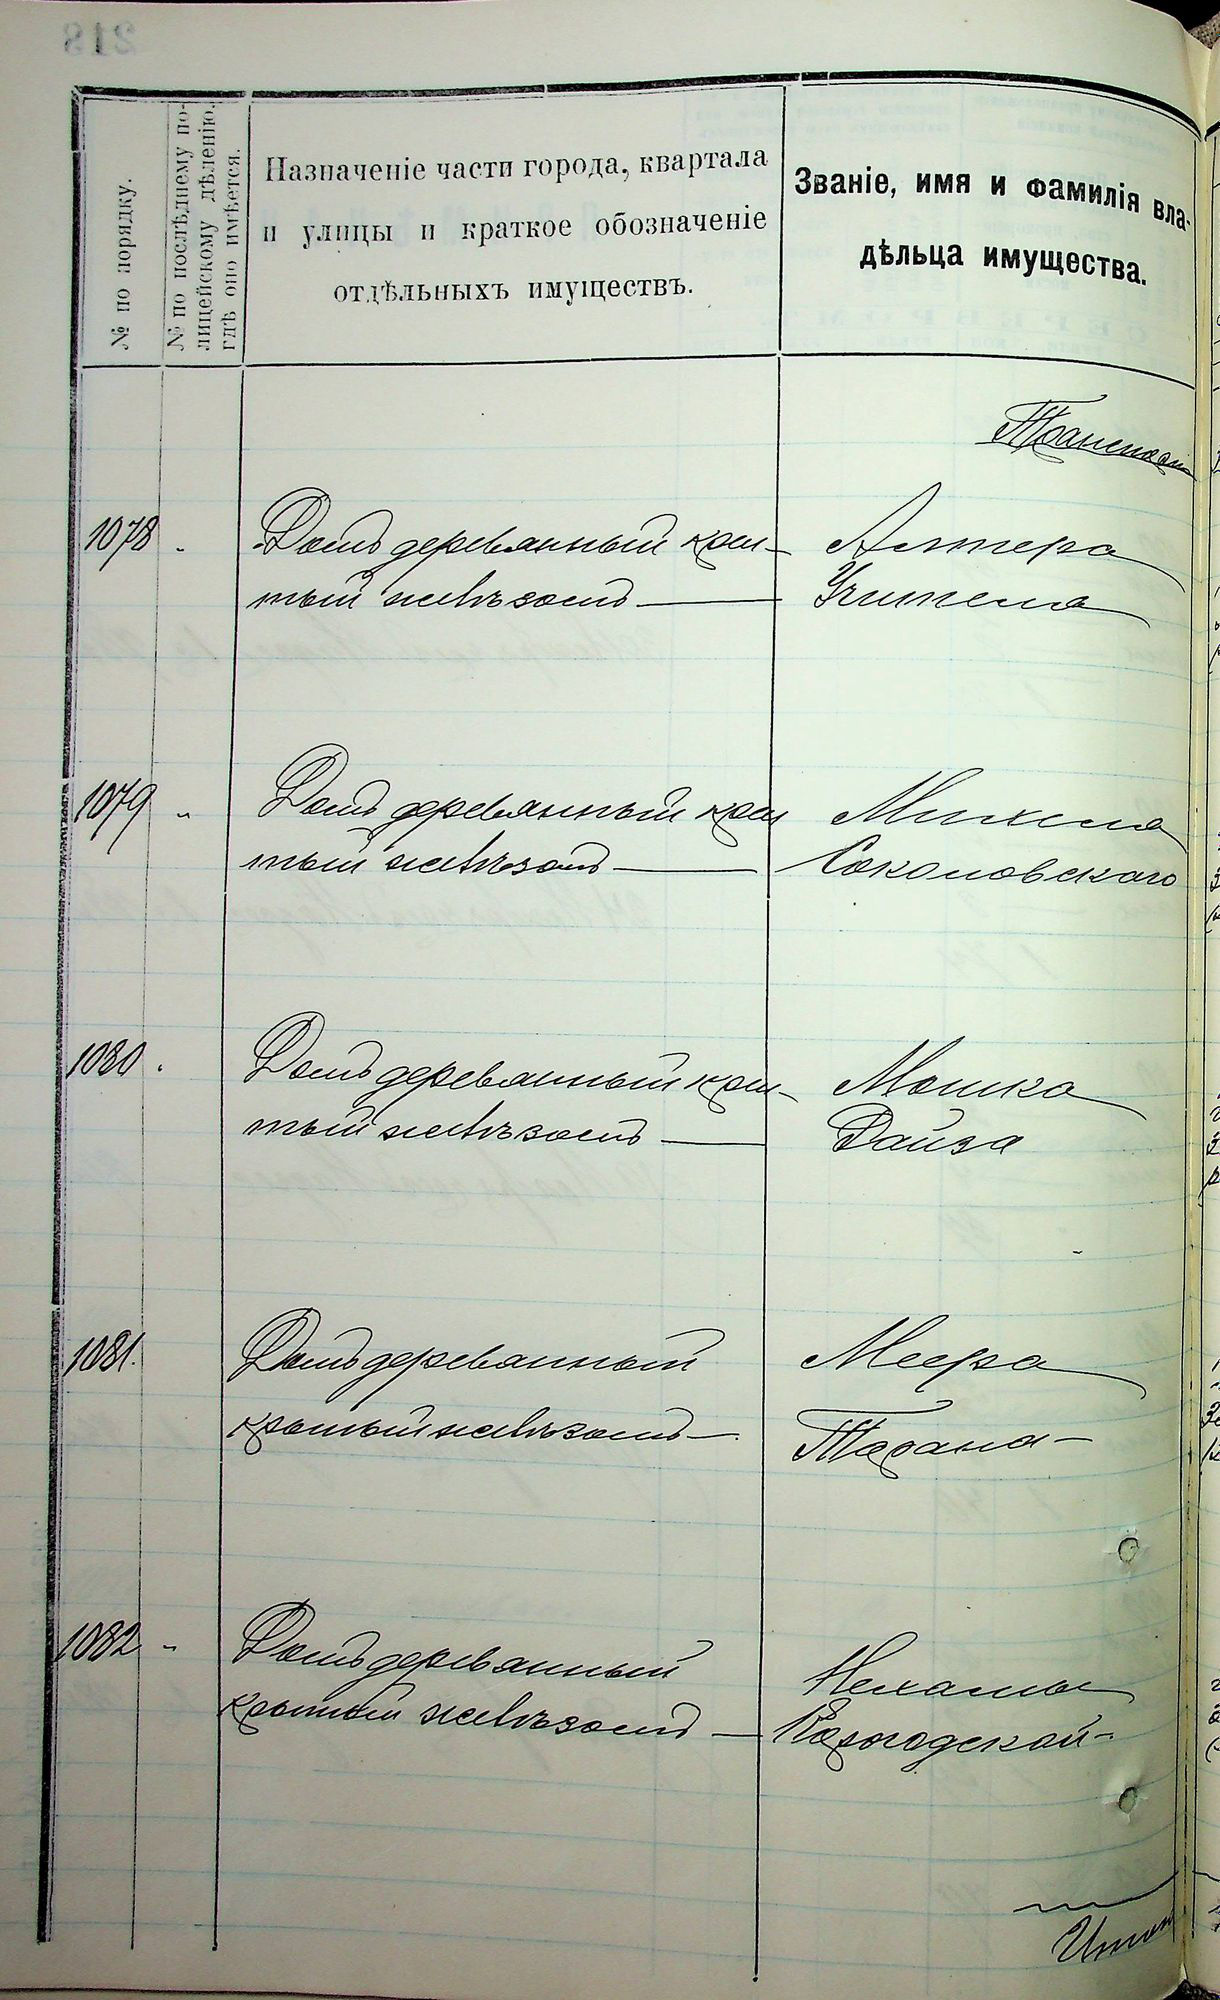 218
№ по порядку.
№ по послѣднему по-
лицейскому дѣленію,
гдѣ оно имѣется.
Назначеніе части города, квартала
и улицы и краткое обозначеніе
отдѣльныхъ имуществъ.
Званіе, имя и фамилія вла-
дѣльца имущества.
Транспортъ
1078 Домъ деревянный кры- Алтера
тый жельзомъ — Учителя
1079 " Домъ деревянный кры Михеля
тый жельзомъ — Соколовскаго
1080 Домъ деревянный кры- Мошка
тый жельзомъ — Дайза
1081. Домъ деревянный Меера
крытый жельзомъ — Тарана —
1082 " Домъ деревянный Нехамы
крытый жельзомъ — Ворогодской -
Итого